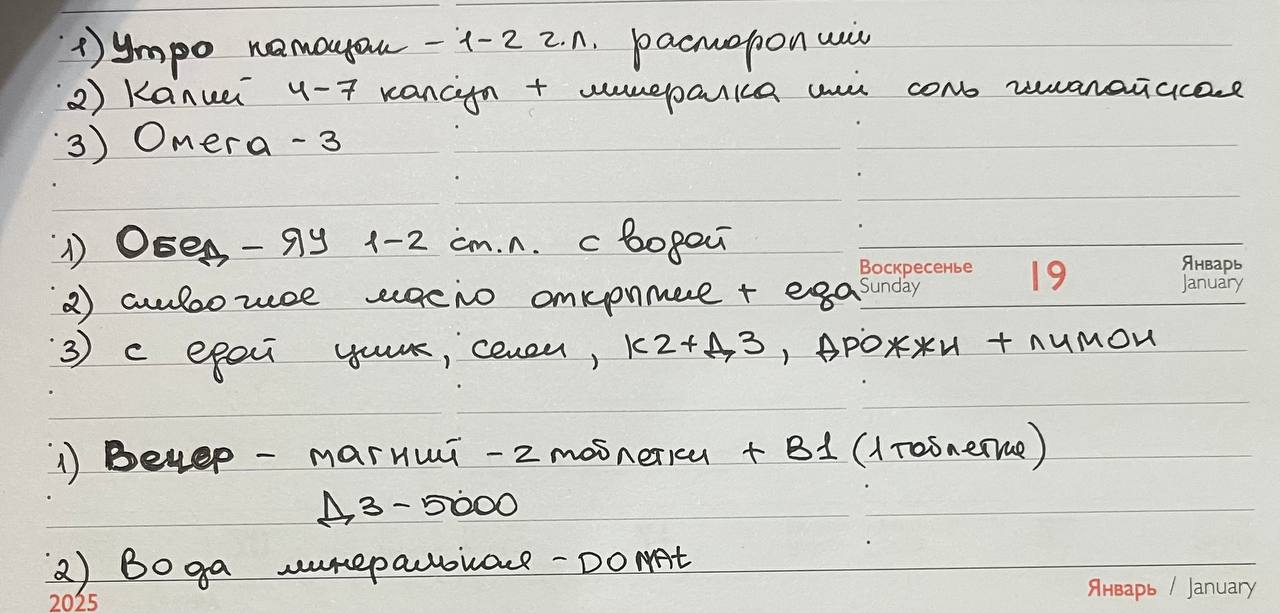 1) Утро натощак - 1-2 г.л. расторопши
2) Калий 4-7 капсул + минералка или соль гималайская
3) Омега - 3
1) Обед - ЯУ 1-2 ст.л. с водой
Воскресенье 19 Январь
Sunday January
2) сливочное масло открытие + еда
3) с едой цинк, селен, К2+Д3, дрожжи + лимон
1) Вечер - магний - 2 таблетки + В1 (1 таблетке)
Д3 - 5000
2) Вода минеральная - DONAt
2025 Январь / January